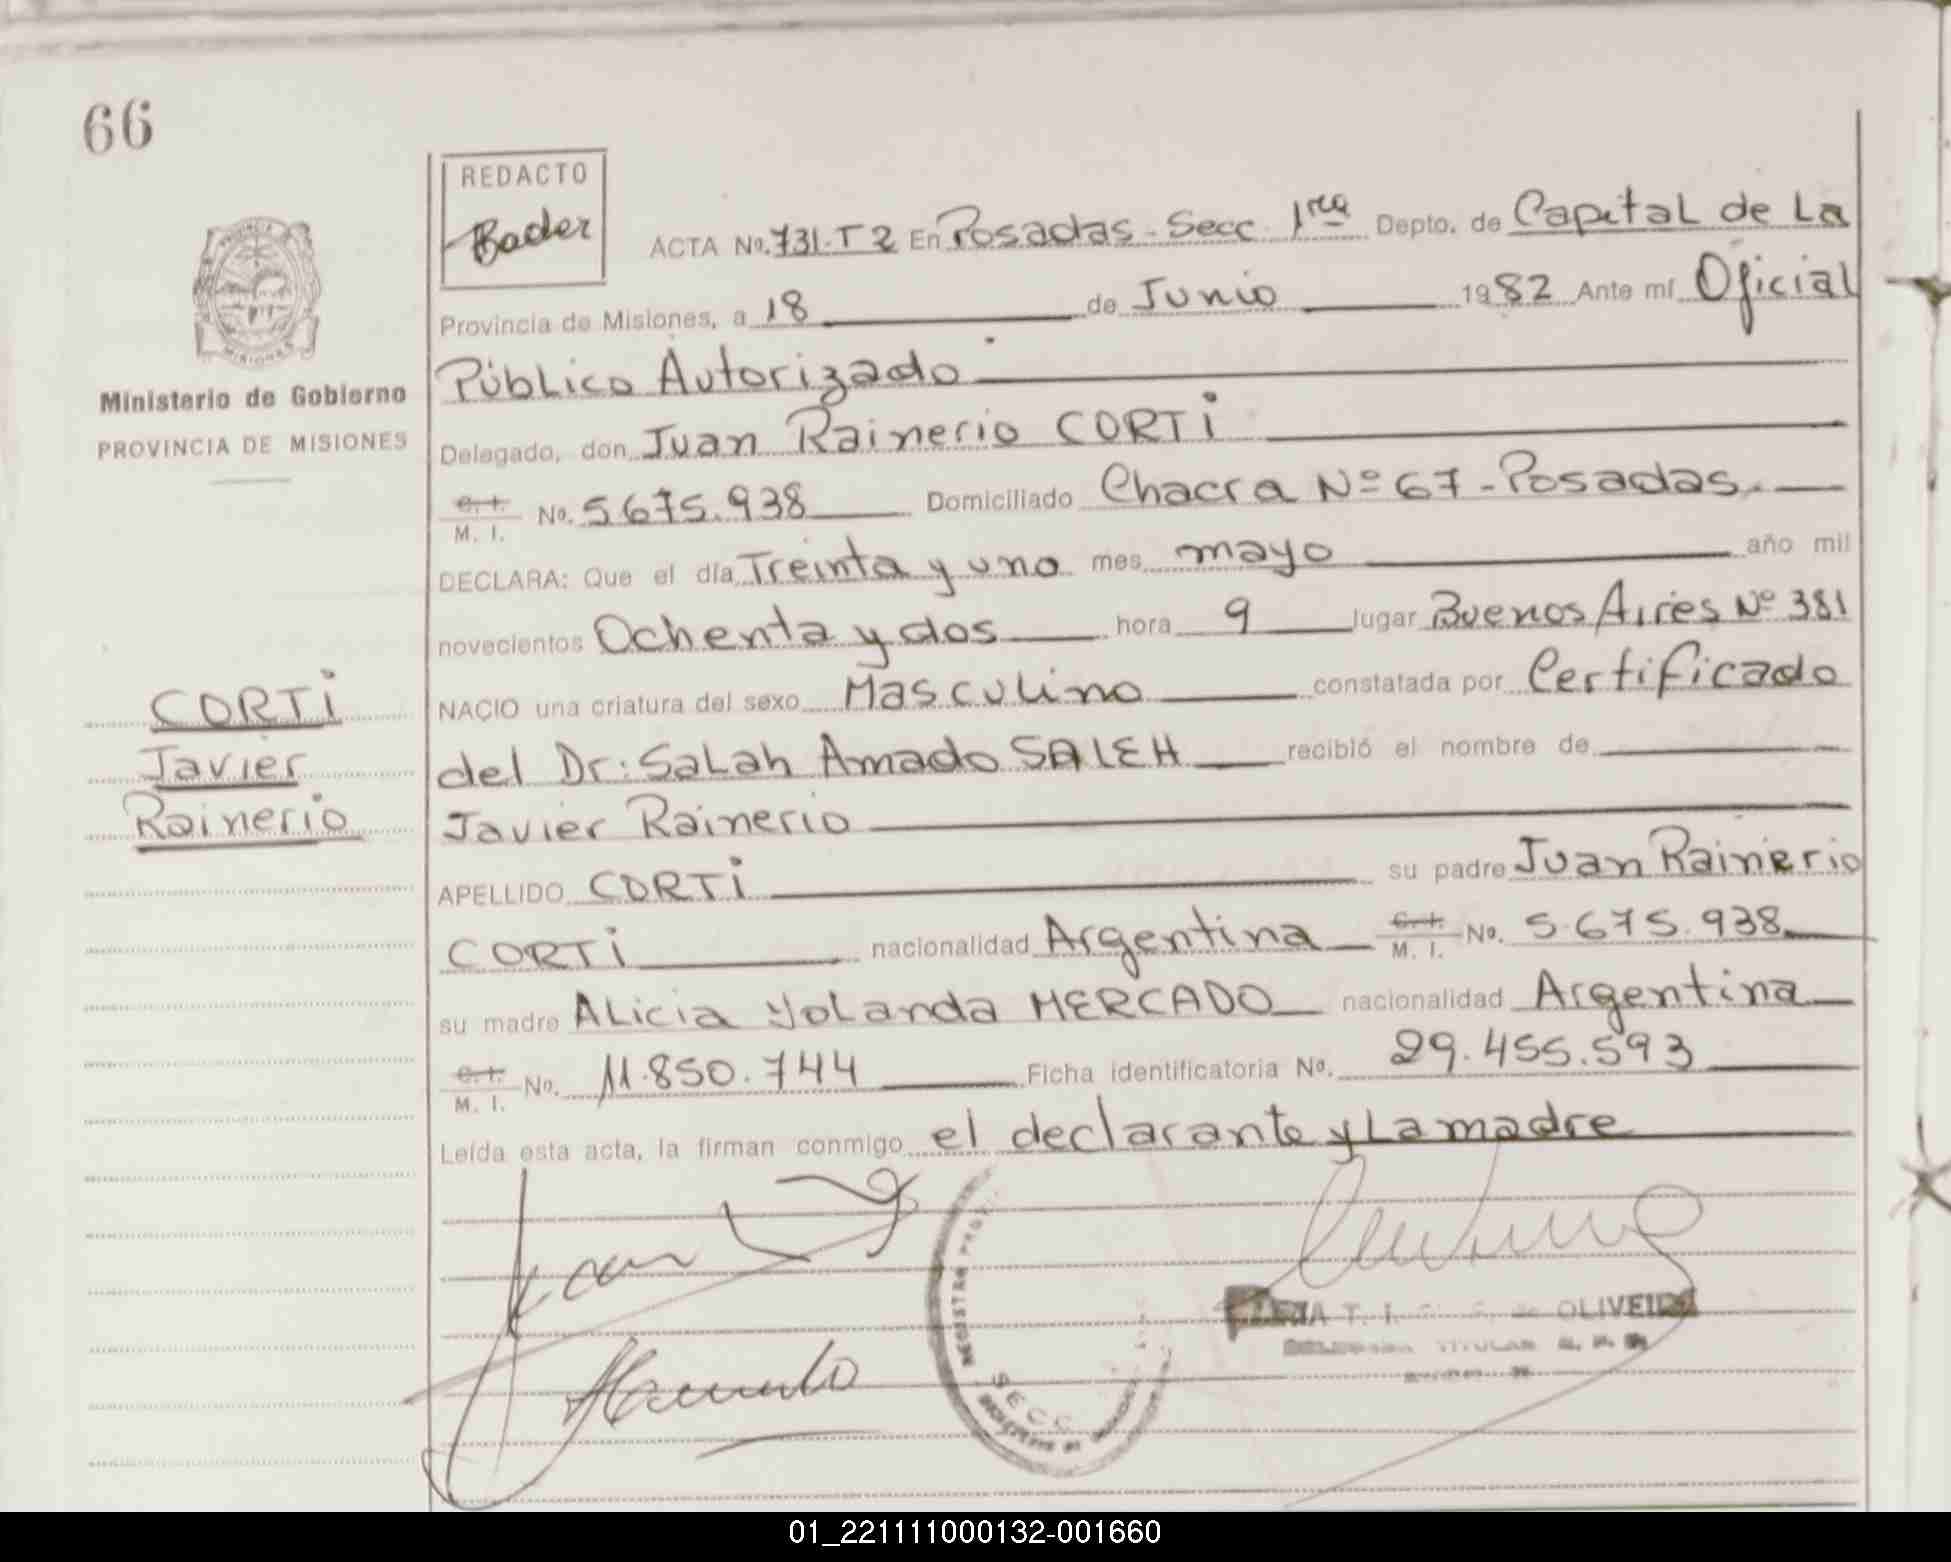 66
REDACTO
Bader
ACTA No. 731-T 2 En Posadas - Secc. 1ra Depto. de Capital de La
Provincia de Misiones, a 18 de Junio 1982 Ante mí Oficial
Público Autorizado
Delegado, don Juan Rainerio CORTi
C. I. M. I. No. 5.675.938 Domiciliado Chacra Nº 67 - Posadas.
DECLARA: Que el día Treinta y uno mes mayo año mil
novecientos Ochenta y dos hora 9 lugar Buenos Aires Nº 381
NACIO una criatura del sexo Masculino constatada por Certificado
del Dr: Salah Amado SALEH recibió el nombre de
Javier Rainerio
APELLIDO CORTi su padre Juan Rainerio
CORTi nacionalidad Argentina C. I. M. I. No. 5.675.938
su madre Alicia Yolanda MERCADO nacionalidad Argentina
C. I. M. I. No. 11.850.744 Ficha identificatoria No. 29.455.593
Leída esta acta, la firman conmigo el declarante y La madre
PROVINCIA DE
MISIONES
Ministerio de Gobierno
PROVINCIA DE MISIONES
CORTi
Javier
Rainerio
REGISTRO PROV.
SECC.
T. I. de OLIVEIRA
TITULAR
01_221111000132-001660